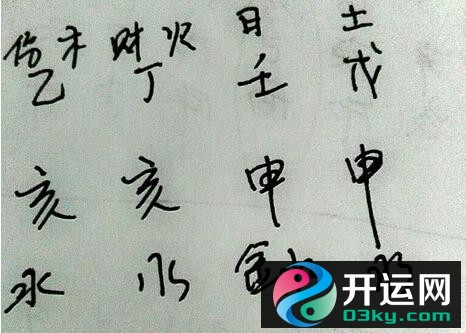 伤木 财火 日 土
乙 丁 壬 戊
亥 亥 申 申
水 水 金水 水
开运网
03ky.com